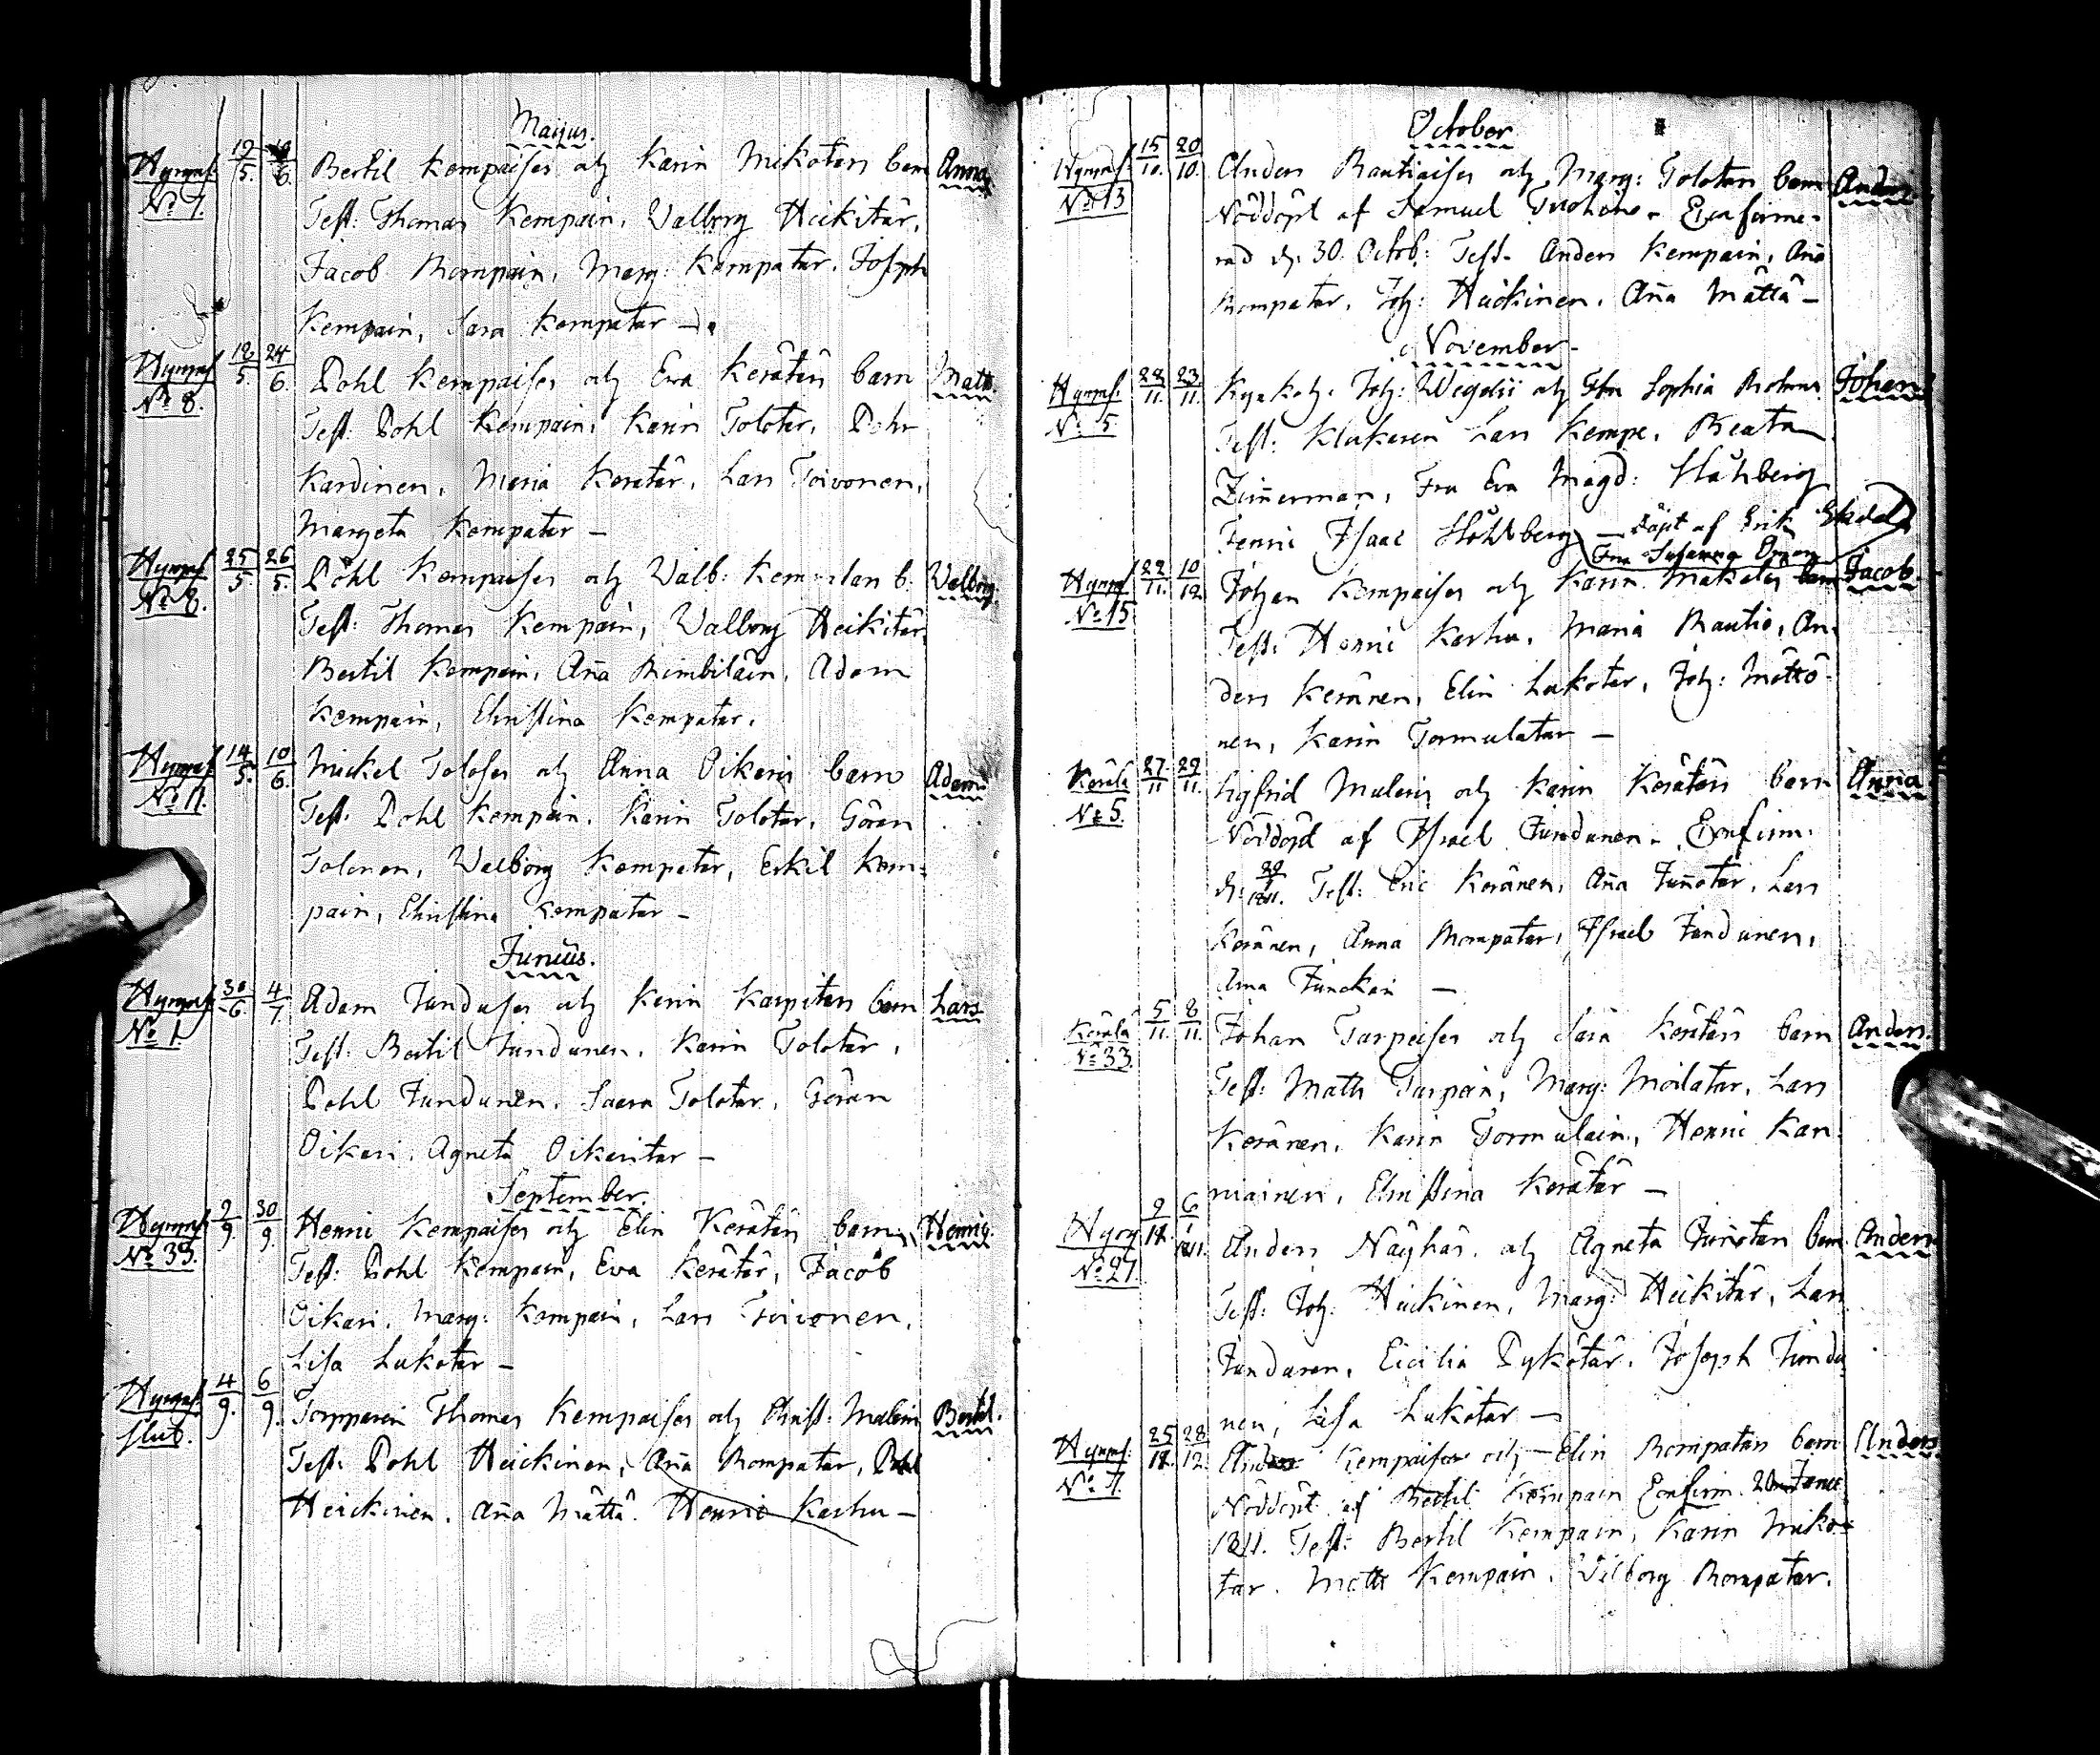 Maijus.
Hyrynf. No 7. 12/5. 6. Bertil Kempaisen och Karin Mikotars barn Anna
Test: Thomas Kempain, Walborg Heikitär,
Jacob Rompain, Marg: Kempatar, Joseph
Kempain, Sara Kempatar —
Hyrynf No 8. 12/5. 24/6. Pohl Kempaisen och Eva Kerätärs barn Matts.
Test: Pohl Kempain, Karin Tolotar, Pehr
Kardinen, Maria Kerätär, Lars Toivonen,
Margeta Kempatar —
Hyrynf No 8. 25/5. 26/5. Pohl Kempaisen och Walb: Kempatars b: Walborg
Test: Thomas Kempain, Walborg Heikitär,
Bertil Kempain, Aña Rimbiläin, Adam
Kempain, Christina Kempatar.
Hyrynf No 11. 14/5. 10/6. Mickel Tolosen och Anna Oikaris barn Adam
Test: Pohl Kempain, Karin Tolotar, Göran
Tolonen, Walborg Kempatar, Eskil Kem=
pain, Christina Kempatar —
Junius.
Hyrynf No 1. 30/6. 4/7. Adam Jundusen och Karin Karpitars barn Lars
Test: Bertil Jundunen, Karin Tolotar,
Pohl Jundunen, Saara Tolotar, Göran
Oikari, Agneta Oikaritar —
September.
Hyrynf No 33. 9/9 30/9. Henric Kempaisen och Elin Kerätärs barn Henric
Test: Pohl Kempain, Eva Kerätär, Jacob
Oikari, Marg: Kempain, Lars Toivonen,
Lisa Lukotar —
Hyrynf. slut. 4/9. 6/9. Torpparen Thomas Kempaisen och Christ: Mulari Bertil.
Test: Pohl Heickinen, Aña Rompatar, Pohl
Heickinen, Aña Mättä. Henric Karhu —
October
Hyrynf. No 13 15/10. 20/10. Anders Rautiaisen och Marg: Tolotars barn Anders
Nöddöpt af Samuel Tuohino. Confirme-
rad d. 30 Octob: Test. Anders Kempain, Aña
Rompatar, Joh: Heickinen, Aña Mättä —
November
Hyrynf. No 5. 23/11. Joh: Wegelii och Fru Sophia Johan
Test: Klockaren Lars Kempe, Beata
Zimerman, Fru Eva Magd: Ståhlberg
Henric Isaac Ståhlberg — döpt af Erik
Fru Susanna
Hyrynf No 15 22/11. 10/12 Johan Kempaisen och Karin barn Jacob
Test: Henric Karhu, Maria Rautio, An-
ders Keränen, Elin Lukotar, Joh: Mättö-
nen, Karin Tormulatar —
Kerälä No 5. 27/11 29/11. Sigfrid Mularis och Karin Kerätärs barn Anna
Nöddöpt af Israel Jundunen. Confirm:
d: Test: Eric Keränen, Aña Juñotar, Lars
Keränen, Anna Rompatar, Israel Jundunen,
Anna Junckari —
Kerälä No 33. 5/11. 8/11. Johan Tarpaisen och Sara Kerätärs barn Anders.
Test: Matts Tarpain, Marg: Moilatar, Lars
Keränen, Karin Tormulain, Henric Kar-
niainen, Christina Kerätär —
Hyryn No 27. 9 6 1811. Anders Näyhäs och Agneta Juñotars barn Anders
Test: Joh: Heickinen, Marg: Heikitär, Lars
Jundunen, Cicilia Pykötär, Joseph Jundu
nen, Lisa Lukotar —
Hyrynf. No 7. 25 28/12. Anders Kempaisen och Elin Rompatars barn Anders
Nöddöpt af Bertil Kempain Confirm. 20 Janu
1811. Test: Bertil Kempain, Karin Miko=
tar. Matts Kempain, Walborg Rompatar.